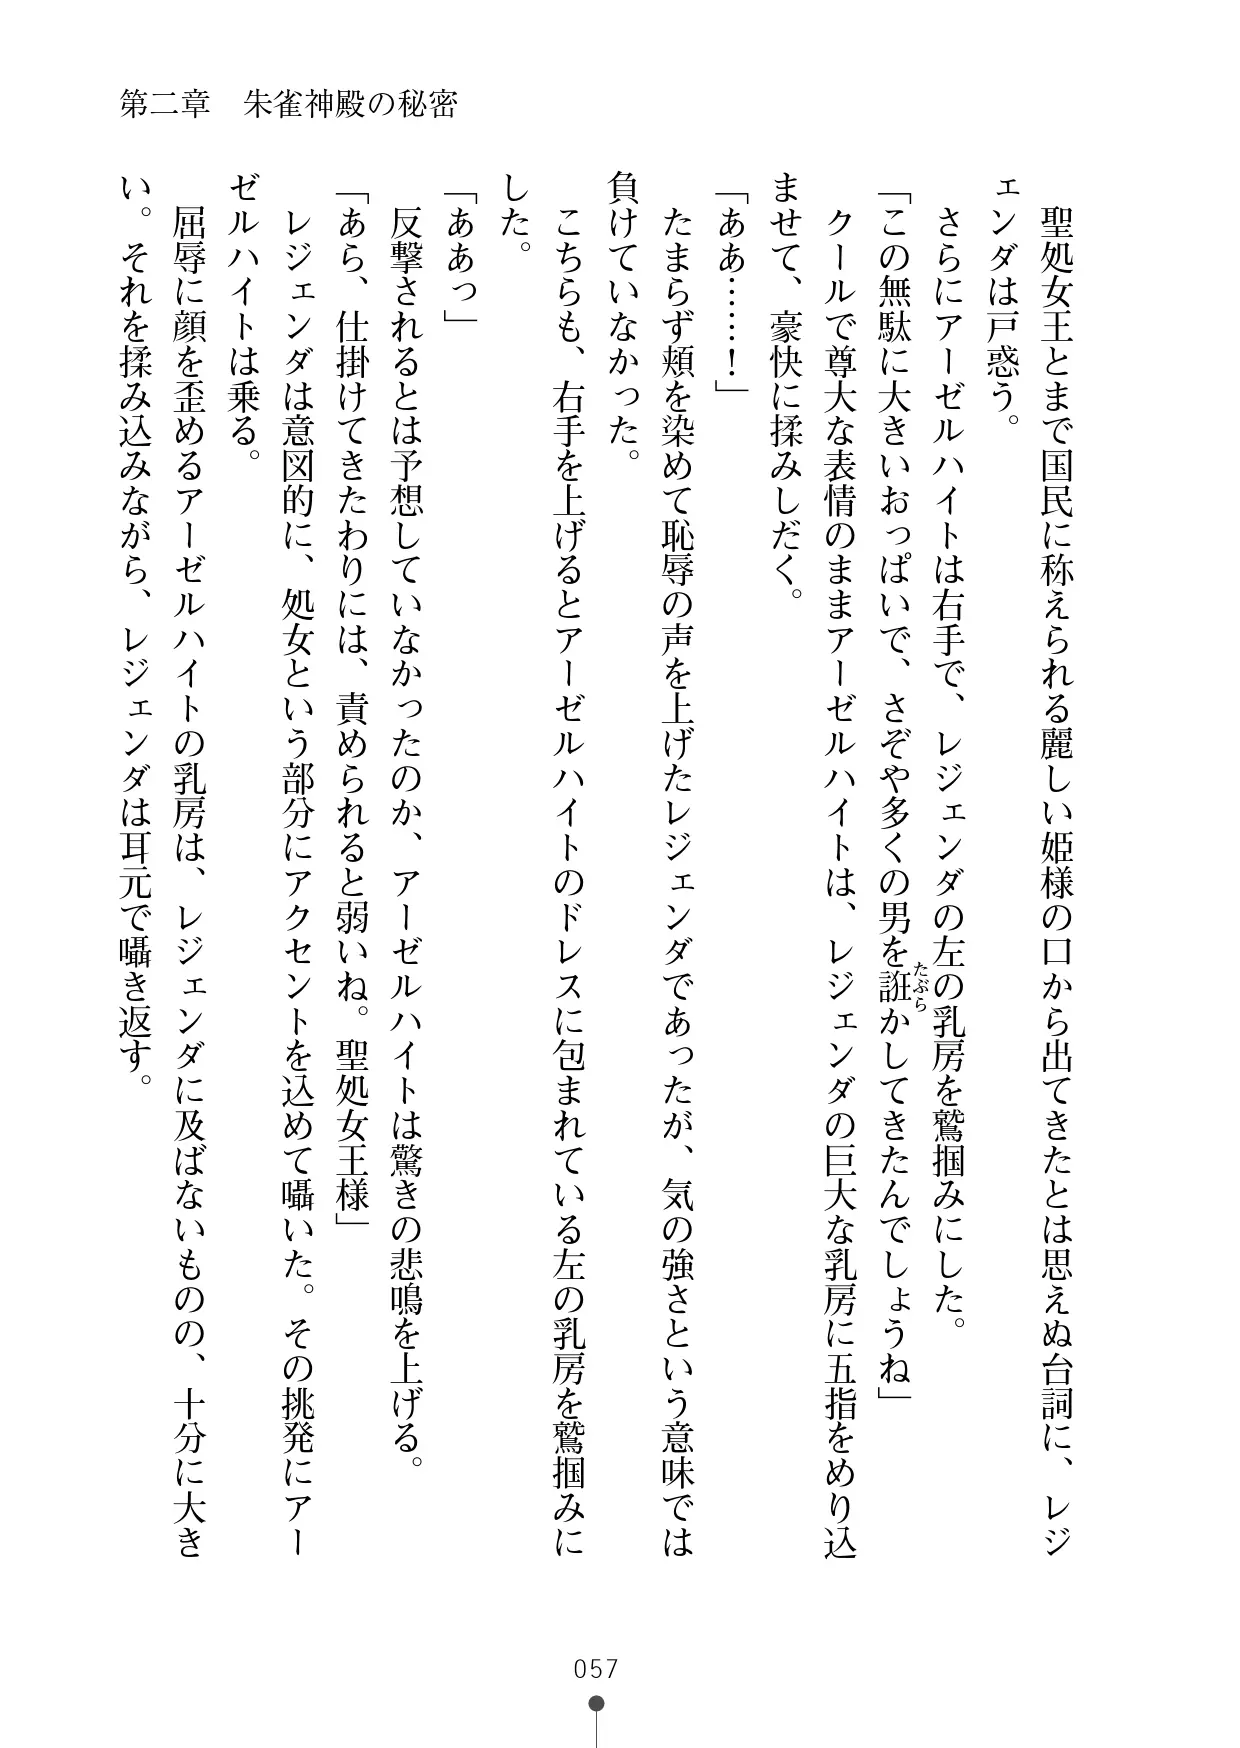 第二章　朱雀神殿の秘密
　聖処女王とまで国民に称えられる麗しい姫様の口から出てきたとは思えぬ台詞に、レジ
ェンダは戸惑う。
　さらにアーゼルハイトは右手で、レジェンダの左の乳房を鷲掴みにした。
「この無駄に大きいおっぱいで、さぞや多くの男を誑かしてきたんでしょうね」
たぶら
　クールで尊大な表情のままアーゼルハイトは、レジェンダの巨大な乳房に五指をめり込
ませて、豪快に揉みしだく。
「ああ……！」
　たまらず頬を染めて恥辱の声を上げたレジェンダであったが、気の強さという意味では
負けていなかった。
　こちらも、右手を上げるとアーゼルハイトのドレスに包まれている左の乳房を鷲掴みに
した。
「ああっ」
　反撃されるとは予想していなかったのか、アーゼルハイトは驚きの悲鳴を上げる。
「あら、仕掛けてきたわりには、責められると弱いね。聖処女王様」
　レジェンダは意図的に、処女という部分にアクセントを込めて囁いた。その挑発にアー
ゼルハイトは乗る。
　屈辱に顔を歪めるアーゼルハイトの乳房は、レジェンダに及ばないものの、十分に大き
い。それを揉み込みながら、レジェンダは耳元で囁き返す。
057